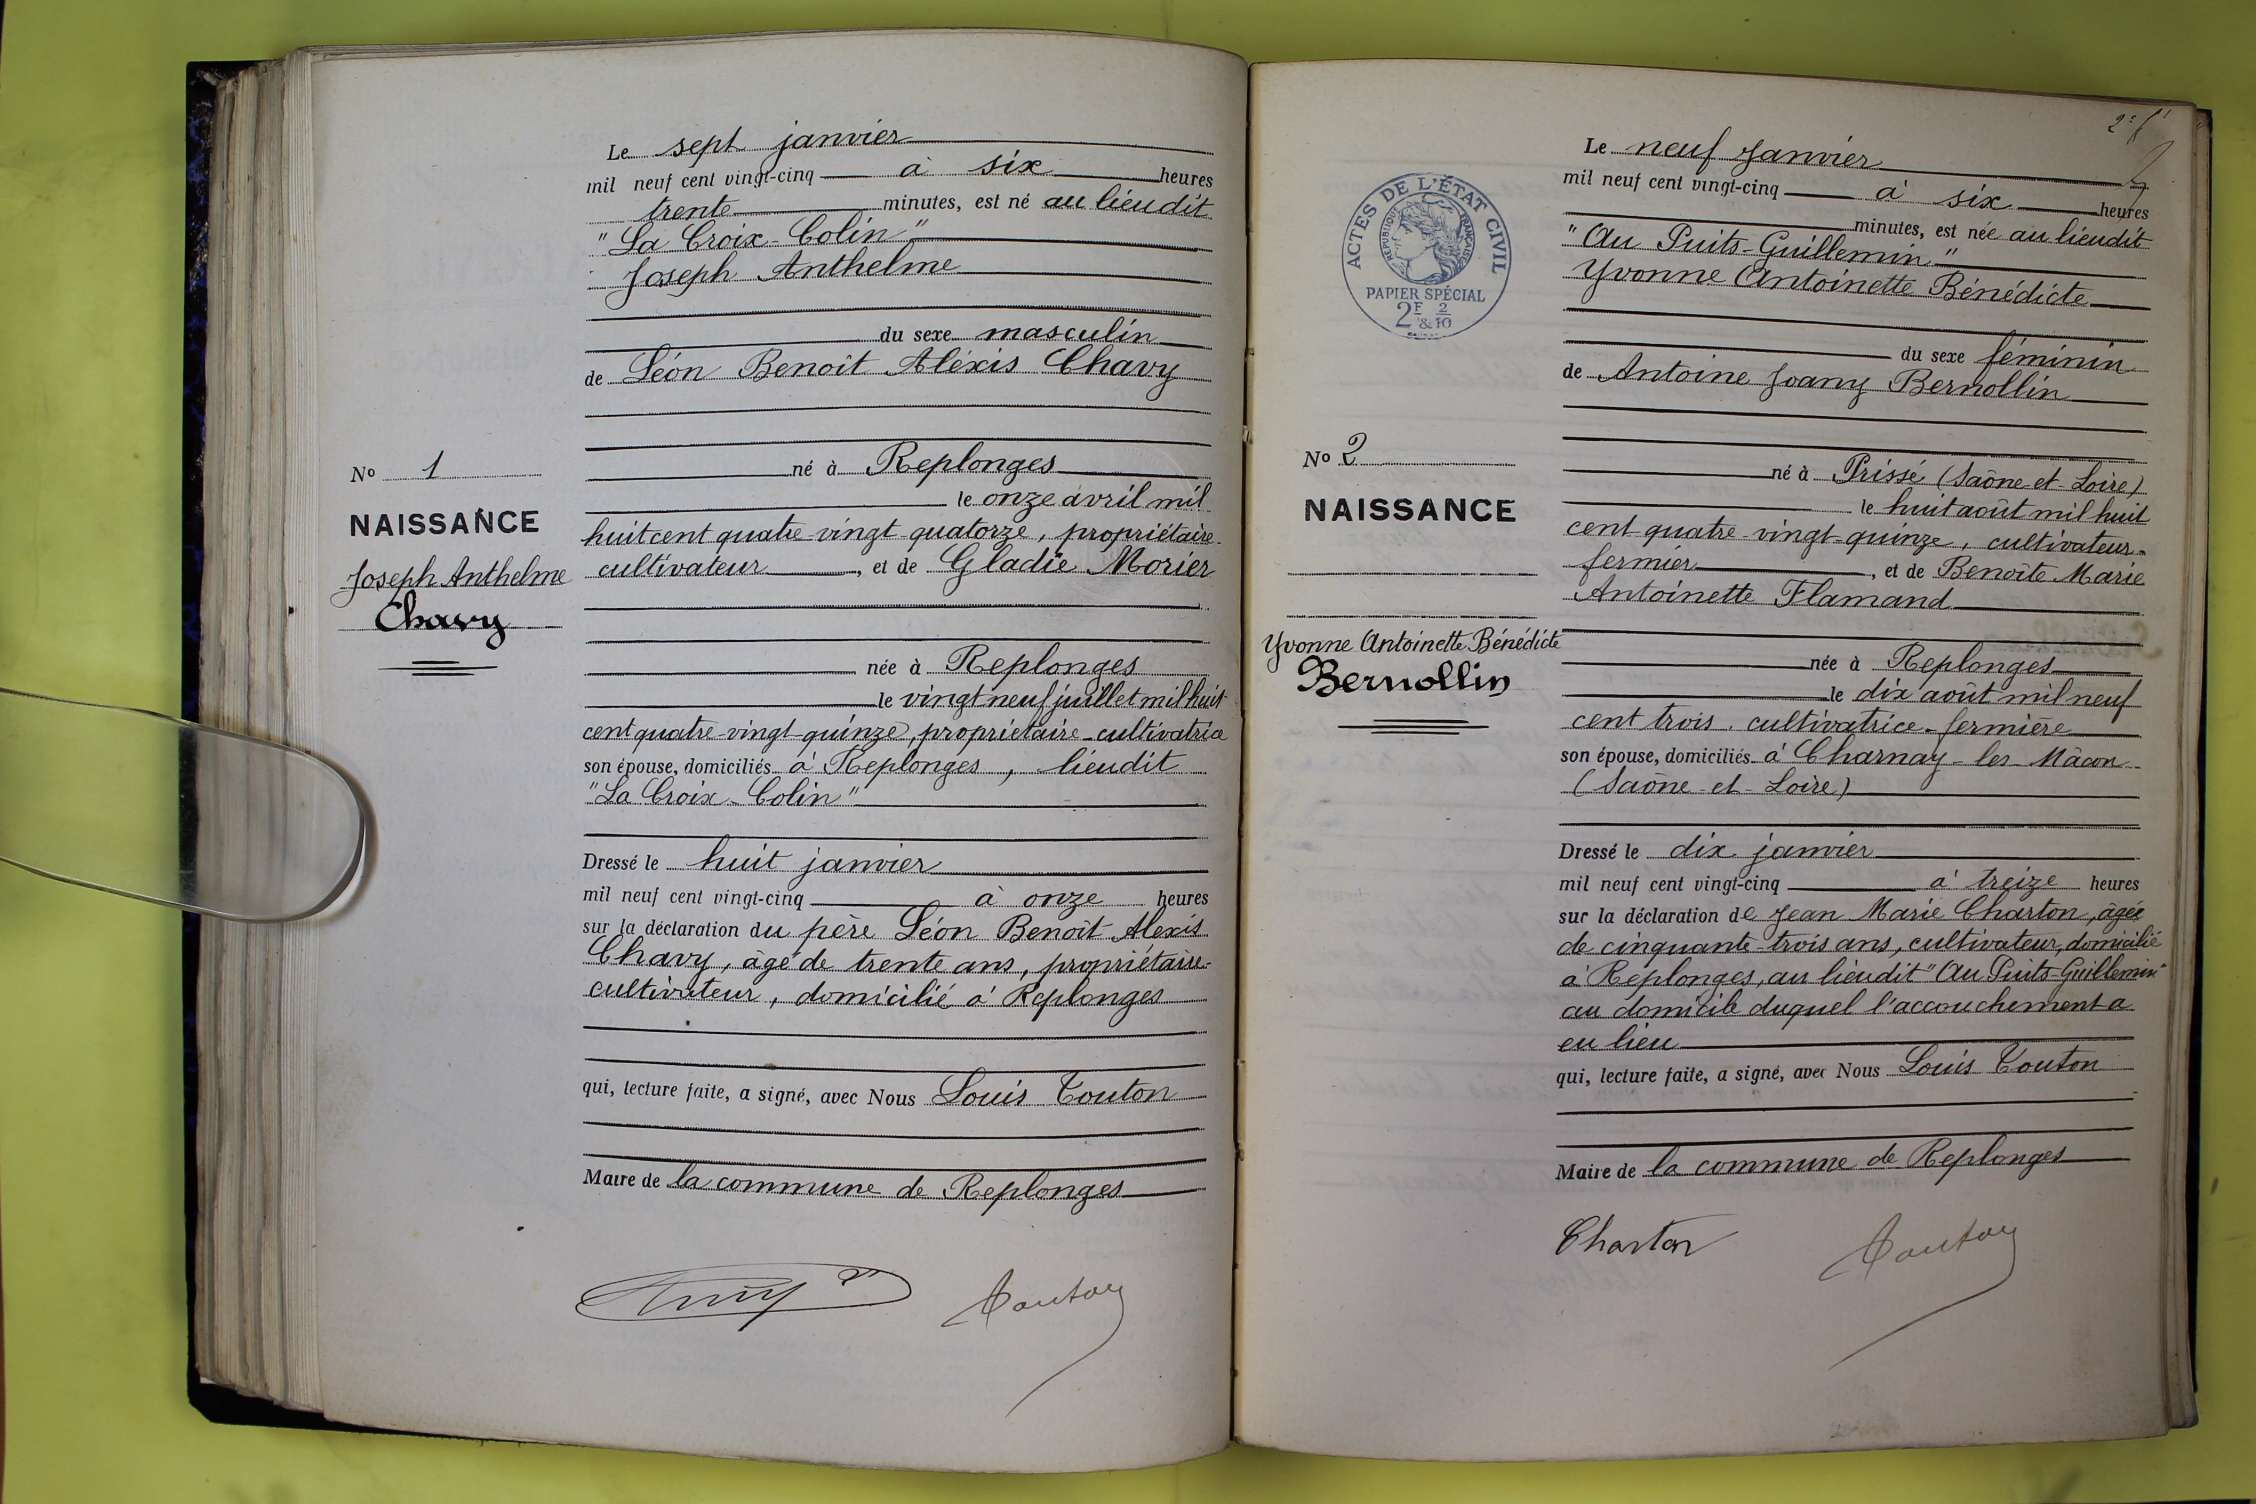 Le sept janvier
mil neuf cent vingt-cinq à six heures
trente minutes, est né au lieudit
"La Croix-Colin"
Joseph Anthelme
du sexe masculin
de Léon Benoît Aléxis Chavy
né à Replonges
le onze avril mil
huit cent quatre-vingt-quatorze, propriétaire-
cultivateur, et de Gladie Morier
née à Replonges
le vingt neuf juillet mil huit
cent quatre-vingt-quinze, propriétaire-cultivatrice
son épouse, domiciliés à Replonges, lieudit
"La Croix-Colin"
Dressé le huit janvier
mil neuf cent vingt-cinq à onze heures
sur la déclaration du père Léon Benoît Alexis
Chavy, âgé de trente ans, propriétaire-
cultivateur, domicilié à Replonges
qui, lecture faite, a signé, avec Nous Louis Touton
Maire de la commune de Replonges
Touton
No 1
NAISSANCE
Joseph Anthelme
Chavy
ACTES DE L'ÉTAT CIVIL
RÉPUBLIQUE FRANÇAISE
PAPIER SPÉCIAL
2F & 2/10
No 2
NAISSANCE
Yvonne Antoinette Bénédicte
Bernollin
Le neuf Janvier
mil neuf cent vingt-cinq à six heures
minutes, est née au lieudit
"Au Puits-Guillemin"
Yvonne Antoinette Bénédicte
du sexe féminin
de Antoine Joany Bernollin
né à Prissé (Saône-et-Loire)
le huit août mil huit
cent quatre-vingt-quinze, cultivateur-
fermier, et de Benoîte Marie
Antoinette Flamand
née à Replonges
le dix août mil neuf
cent trois, cultivatrice-fermière
son épouse, domiciliés à Charnay-les-Mâcon
(Saône-et-Loire)
Dressé le dix janvier
mil neuf cent vingt-cinq à treize heures
sur la déclaration de Jean Marie Charton, âgé
de cinquante-trois ans, cultivateur, domicilié
à Replonges, au lieudit "Au Puits-Guillemin"
au domicile duquel l'accouchement a
eu lieu
qui, lecture faite, a signé, avec Nous Louis Touton
Maire de la commune de Replonges
Charton Touton